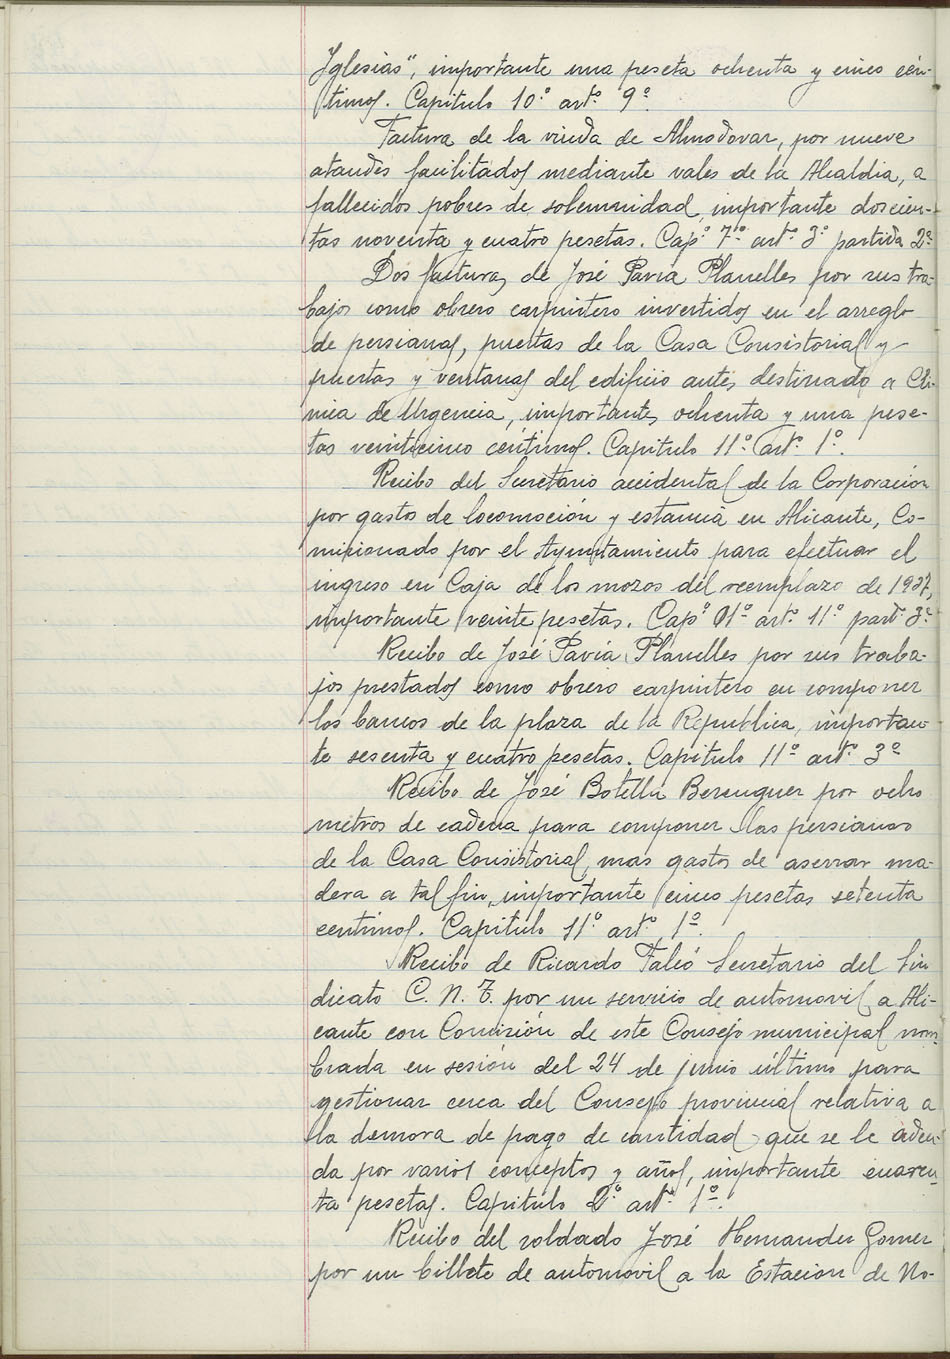 Yglesias", importante una peseta ochenta y cinco cén-
timos. Capitulo 10º artº 9º
Factura de la viuda de Almodovar, por nueve
ataudes facilitados mediante vales de la Alcaldia, a
fallecidos pobres de solemnidad, importante doscien-
tas noventa y cuatro pesetas. Capº 7º artº 3º partida 2ª
Dos facturas de José Pavia Planelles por sus tra-
bajos como obrero carpintero invertidos en el arreglo
de persianas, puertas de la Casa Consistorial y
puertas y ventanas del edificio antes destinado a Clí-
nica de Urgencia, importantes ochenta y una pese-
tas veinticinco céntimos. Capitulo 11º artº 1º.
Recibo del Secretario accidental de la Corporación
por gastos de locomoción y estancia en Alicante, Co-
misionado por el Ayuntamiento para efectuar el
ingreso en Caja de los mozos del reemplazo de 1937,
importante veinte pesetas. Capº 1º artº 11º partª 3ª
Recibo de José Pavia Planelles por sus traba-
jos prestados como obrero carpintero en componer
los bancos de la plaza de la Republica, importan-
te sesenta y cuatro pesetas. Capitulo 11º artº 3º
Recibo de José Botella Berenguer por ocho
metros de cadena para componer las persianas
de la Casa Consistorial, mas gastos de aserrar ma-
dera a tal fin, importante cinco pesetas setenta
centimos. Capitulo 11º artº 1º.
Recibo de Ricardo Falcó Secretario del Sin
dicato C. N. T. por un servicio de automovil a Ali-
cante con Comisión de este Consejo municipal nom-
brada en sesión del 24 de junio último para
gestionar cerca del Consejo provincial relativa a
la demora de pago de cantidad que se le adeu-
da por varios conceptos y años, importante cuaren-
ta pesetas. Capitulo 2º artº 1º.
Recibo del soldado José Hernandez Gomez
por un billete de automovil a la Estacion de No-